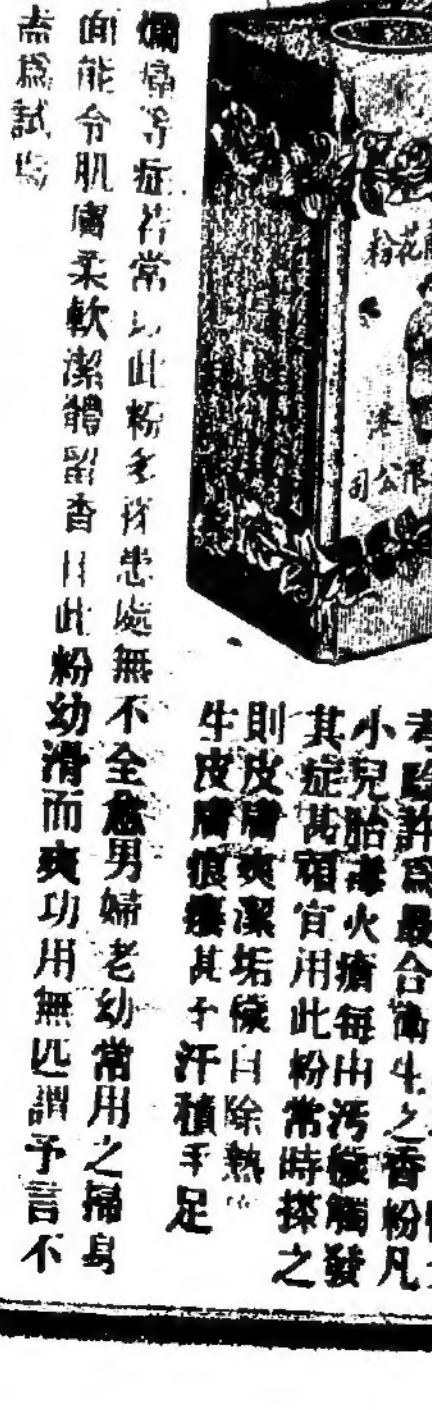 考驗許爲最合衞生之香粉凡
小兒胎毒火瘡每由汚穢觸發
其症甚頑宜用此粉常時搽之
則皮膚爽潔垢穢自除熱
牛皮膚痕癢甚于汗積手足
爛痛等症若常以此粉多搽患處無不全愈男婦老幼常用之掃身
面能令肌膚柔軟潔體留香且此粉幼滑而爽功用無匹謂予言不
盍爲試焉
花粉
港
公司